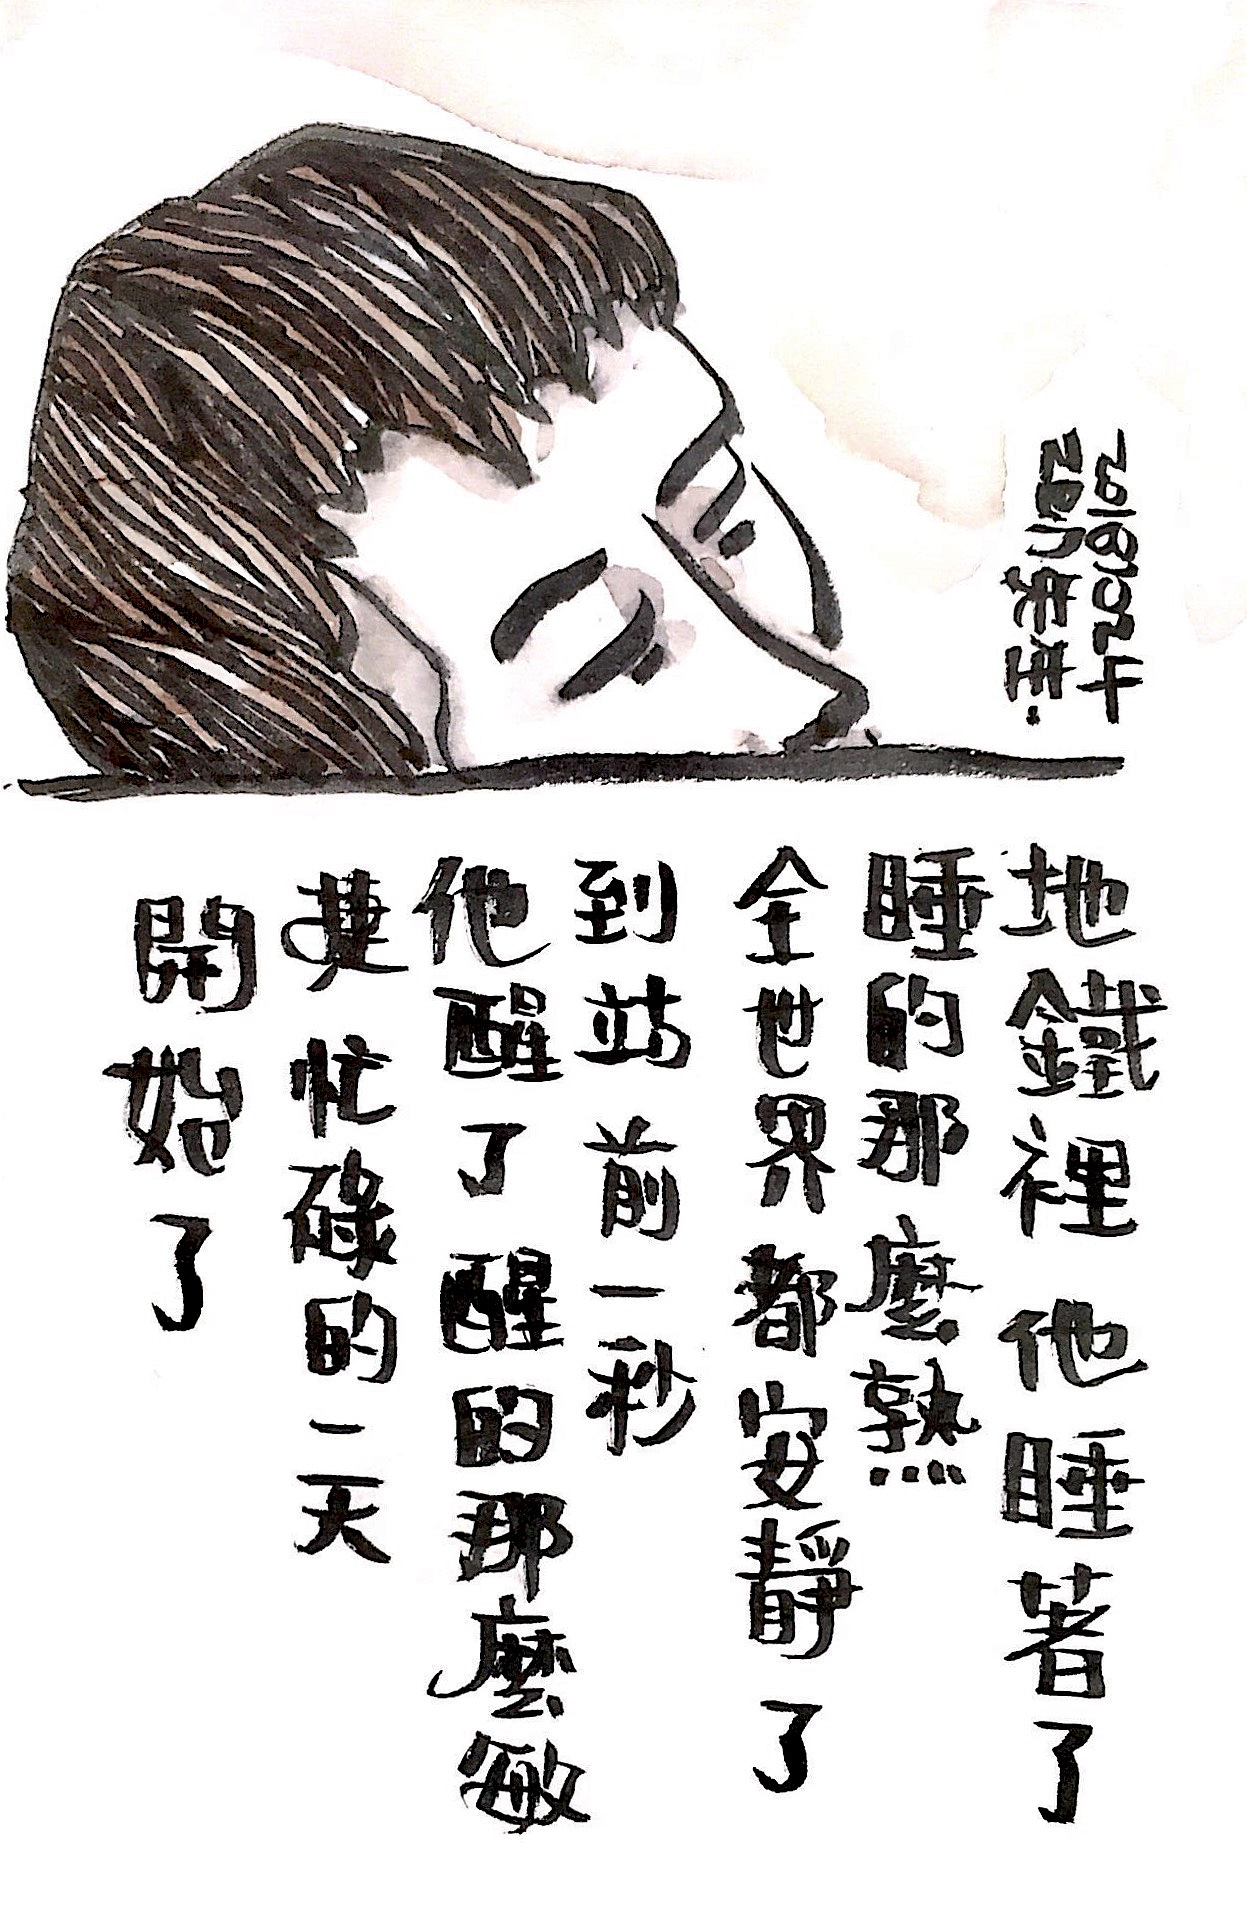 地鐵裡 他睡著了
睡的那麼熟
全世界都安靜了
到站 前一秒
他醒了 醒的那麼敏
捷 忙碌的一天
開始了
20181024